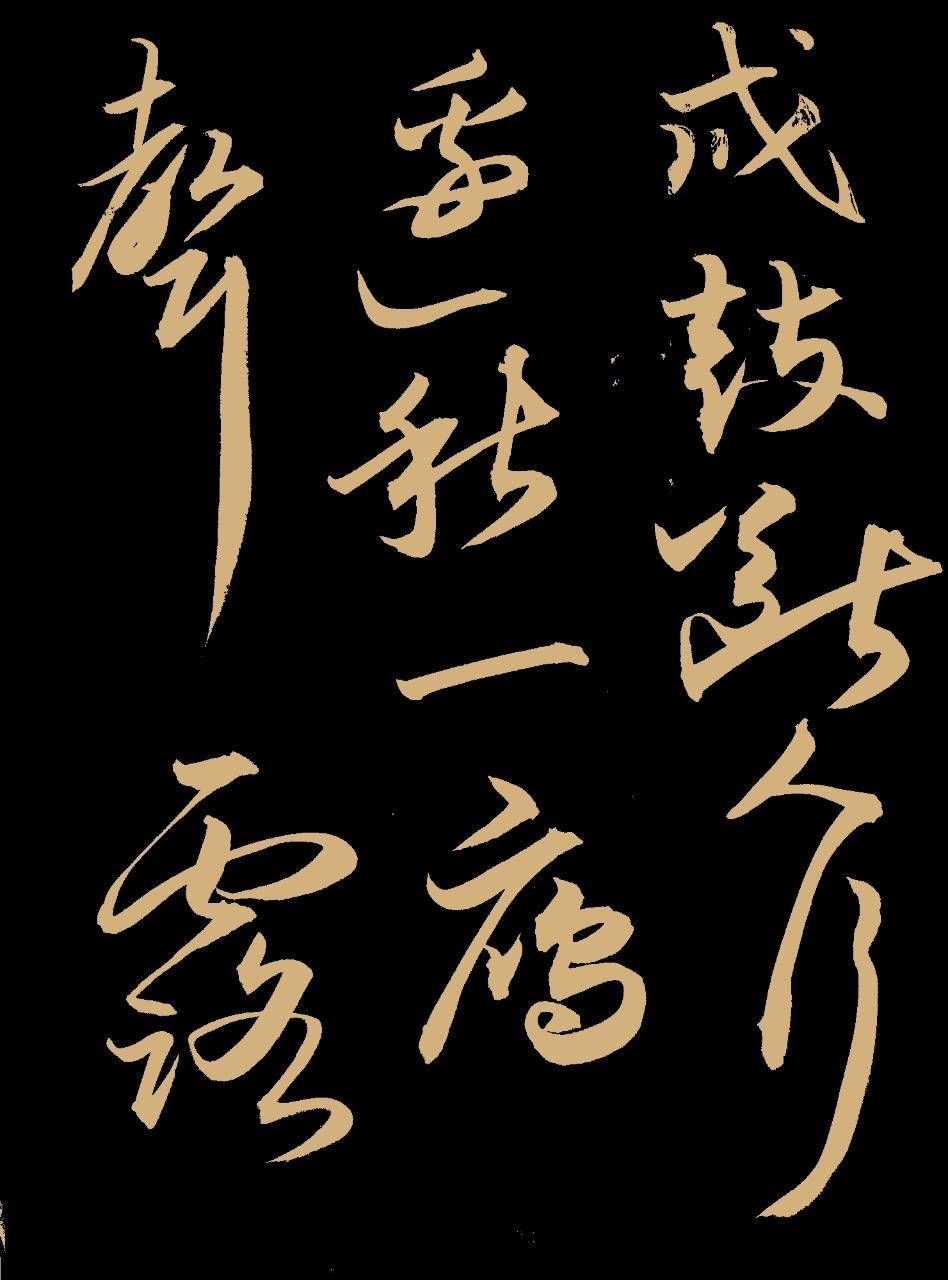 戍鼓斷人行
邊秋一雁
聲露